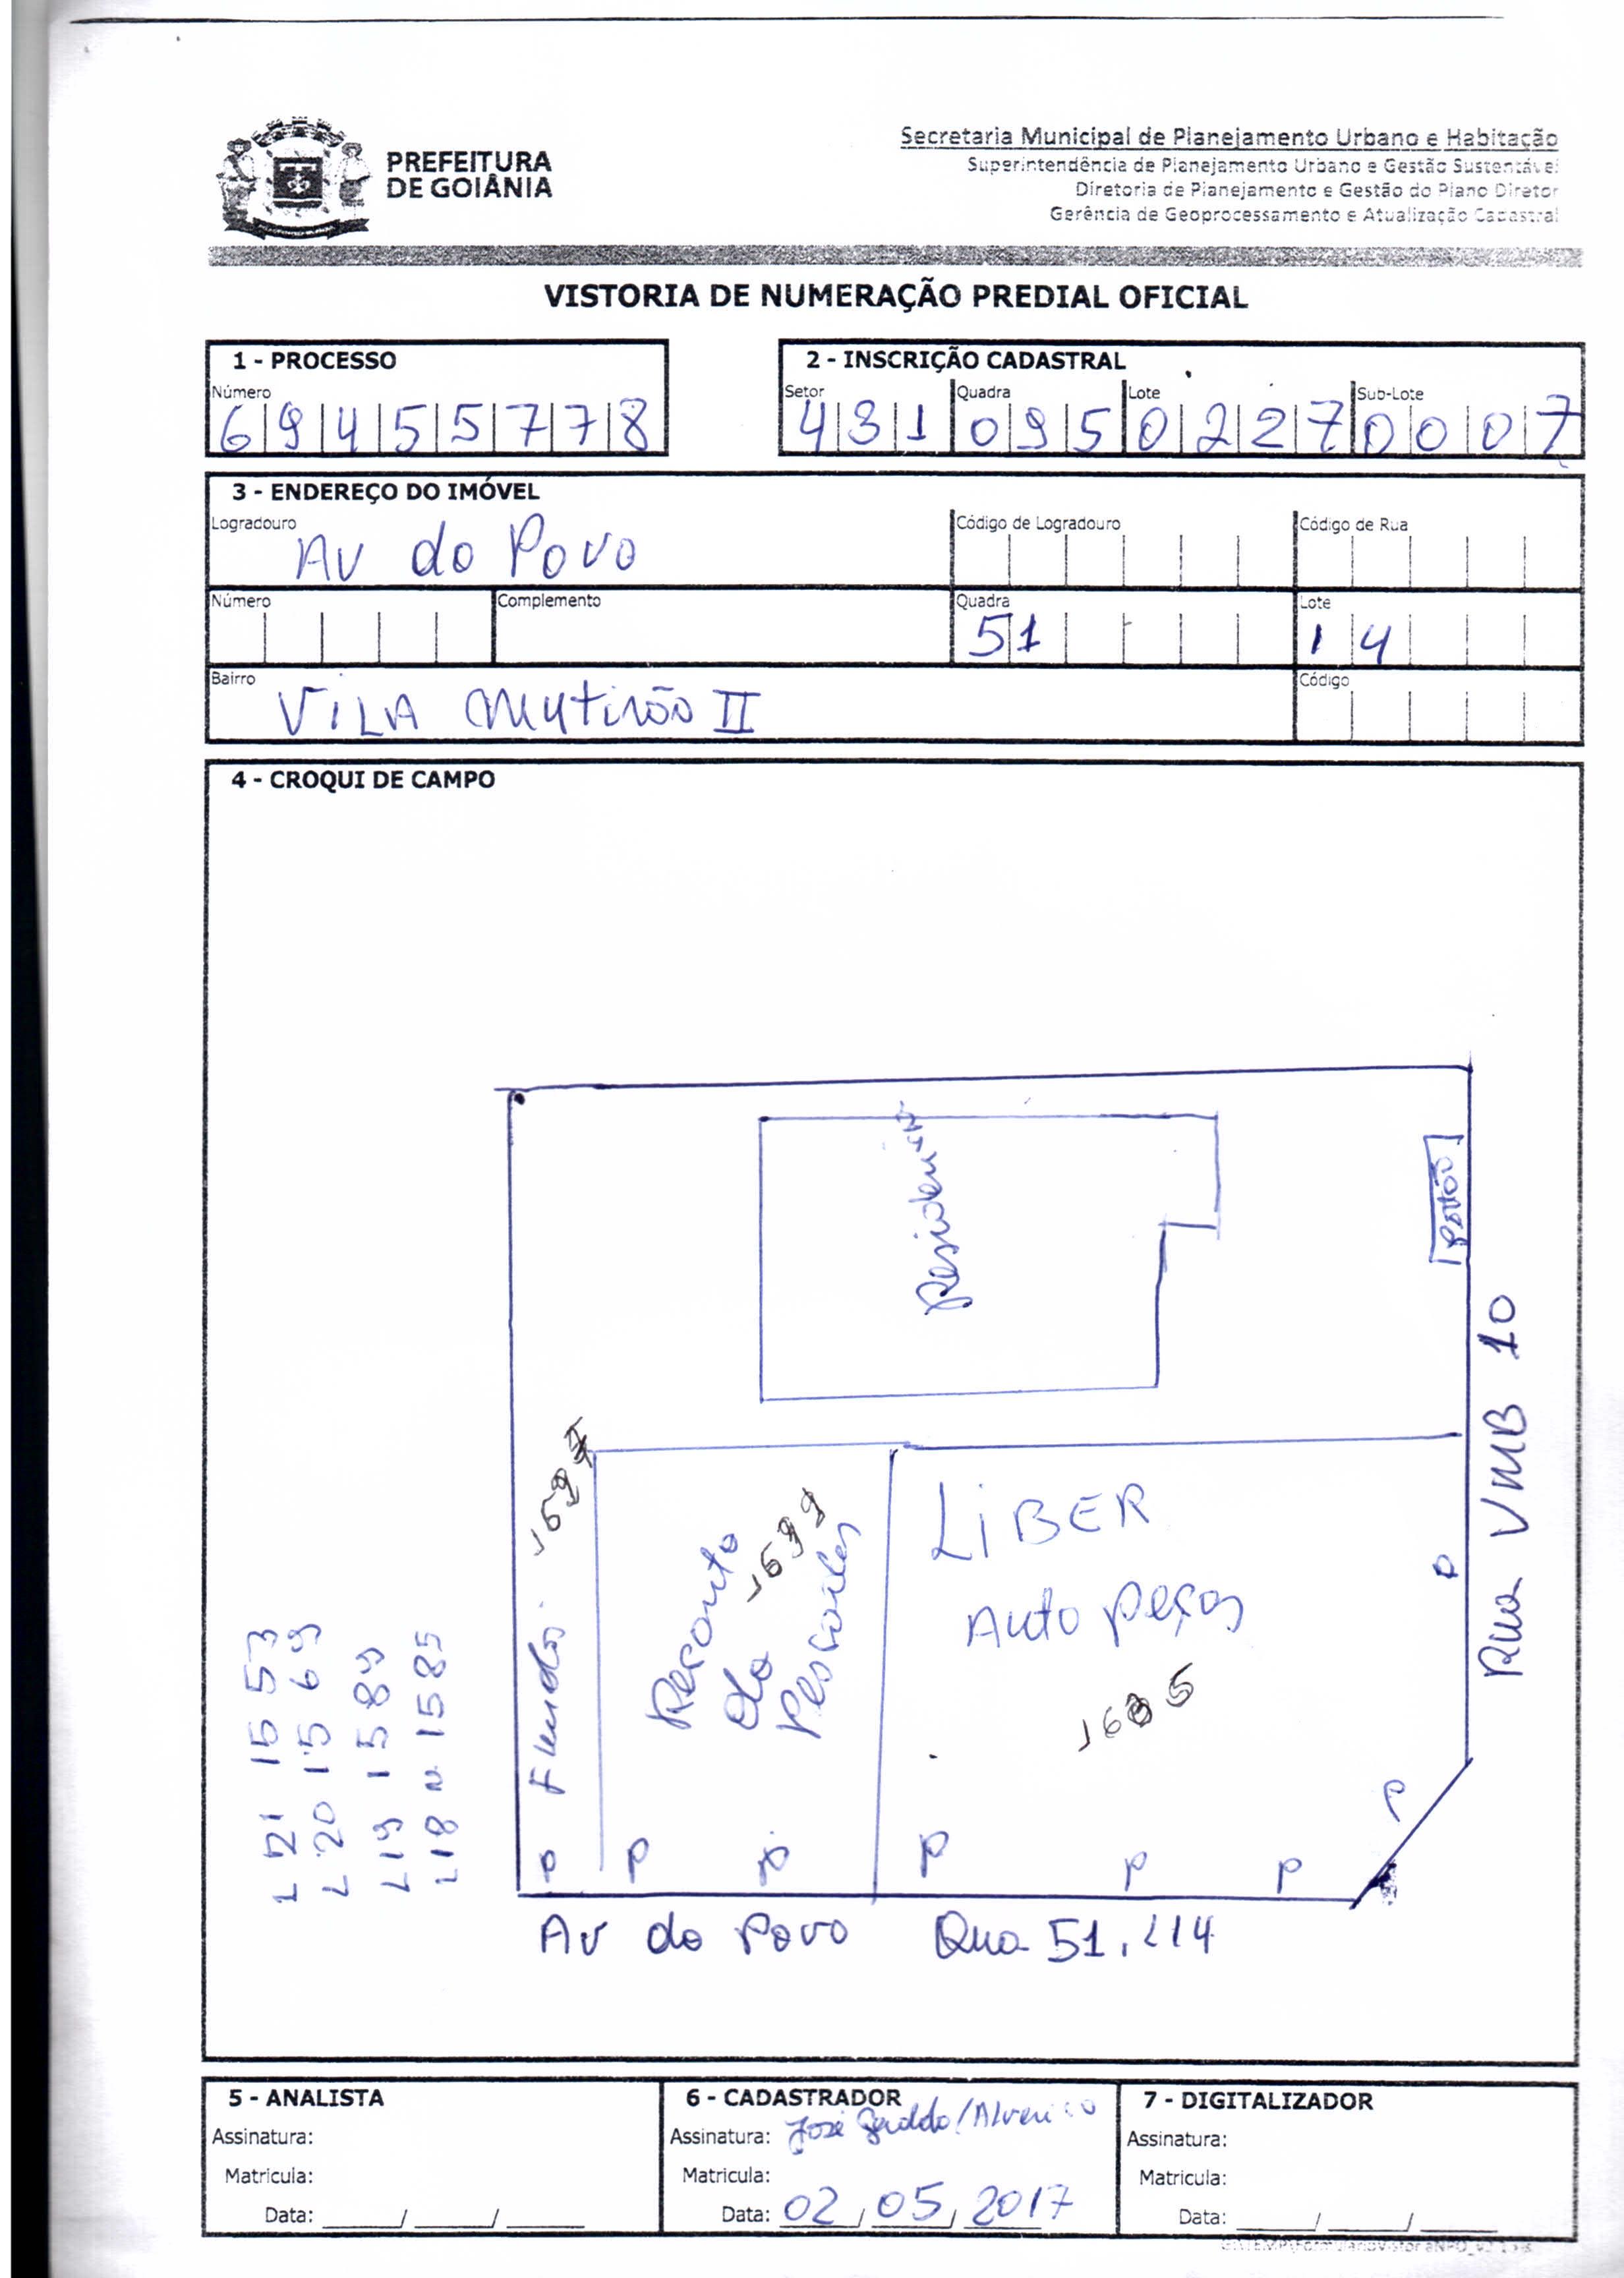 PREFEITURA
DE GOIÂNIA
Secretaria Municipal de Planejamento Urbano e Habitação
Superintendência de Planejamento Urbano e Gestão Sustentável
Diretoria de Planejamento e Gestão do Plano Diretor
Gerência de Geoprocessamento e Atualização Cadastral
VISTORIA DE NUMERAÇÃO PREDIAL OFICIAL
1 - PROCESSO
Número
69455778
2 - INSCRIÇÃO CADASTRAL
Setor Quadra Lote Sub-Lote
431 095 0227 0007
3 - ENDEREÇO DO IMÓVEL
Logradouro Código de Logradouro Código de Rua
Av do Povo
Número Complemento Quadra Lote
51 14
Bairro Código
VILA Mutirão II
4 - CROQUI DE CAMPO
Portão
Rua VMB 10
LIBER
Auto peças
Recanto
do
1699
L 21 1553
L 20 1569
L 19 1589
L 18 N 1585
P P P P P
Av do Povo Qua 51. L14
5 - ANALISTA
Assinatura:
Matricula:
Data: ____/____/____
6 - CADASTRADOR
Assinatura: José Geraldo/
Matricula:
Data: 02/05/2017
7 - DIGITALIZADOR
Assinatura:
Matricula:
Data: ____/____/____